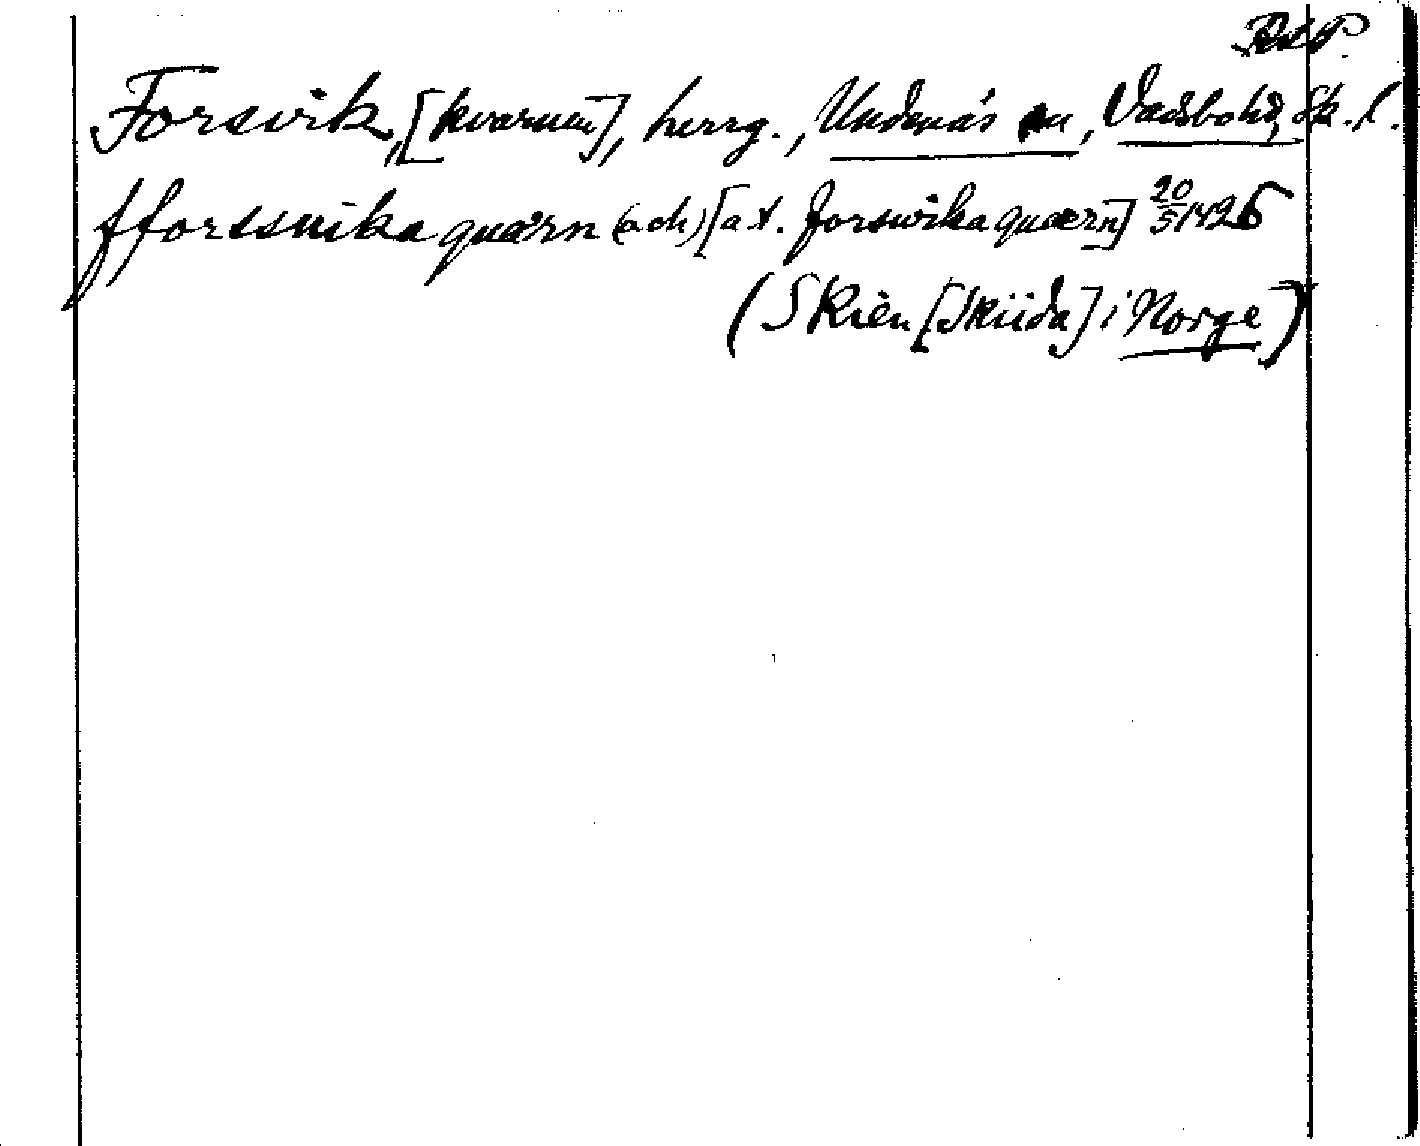 RAP.
Forsvik, [kvarnen], herrg., Undenäs sn, Vadsbo hd, Sk. l.
fforssuika quærn (och) [a.t. forswika quærn] 20/5 1426
(Skien [Skiida] i Norge)